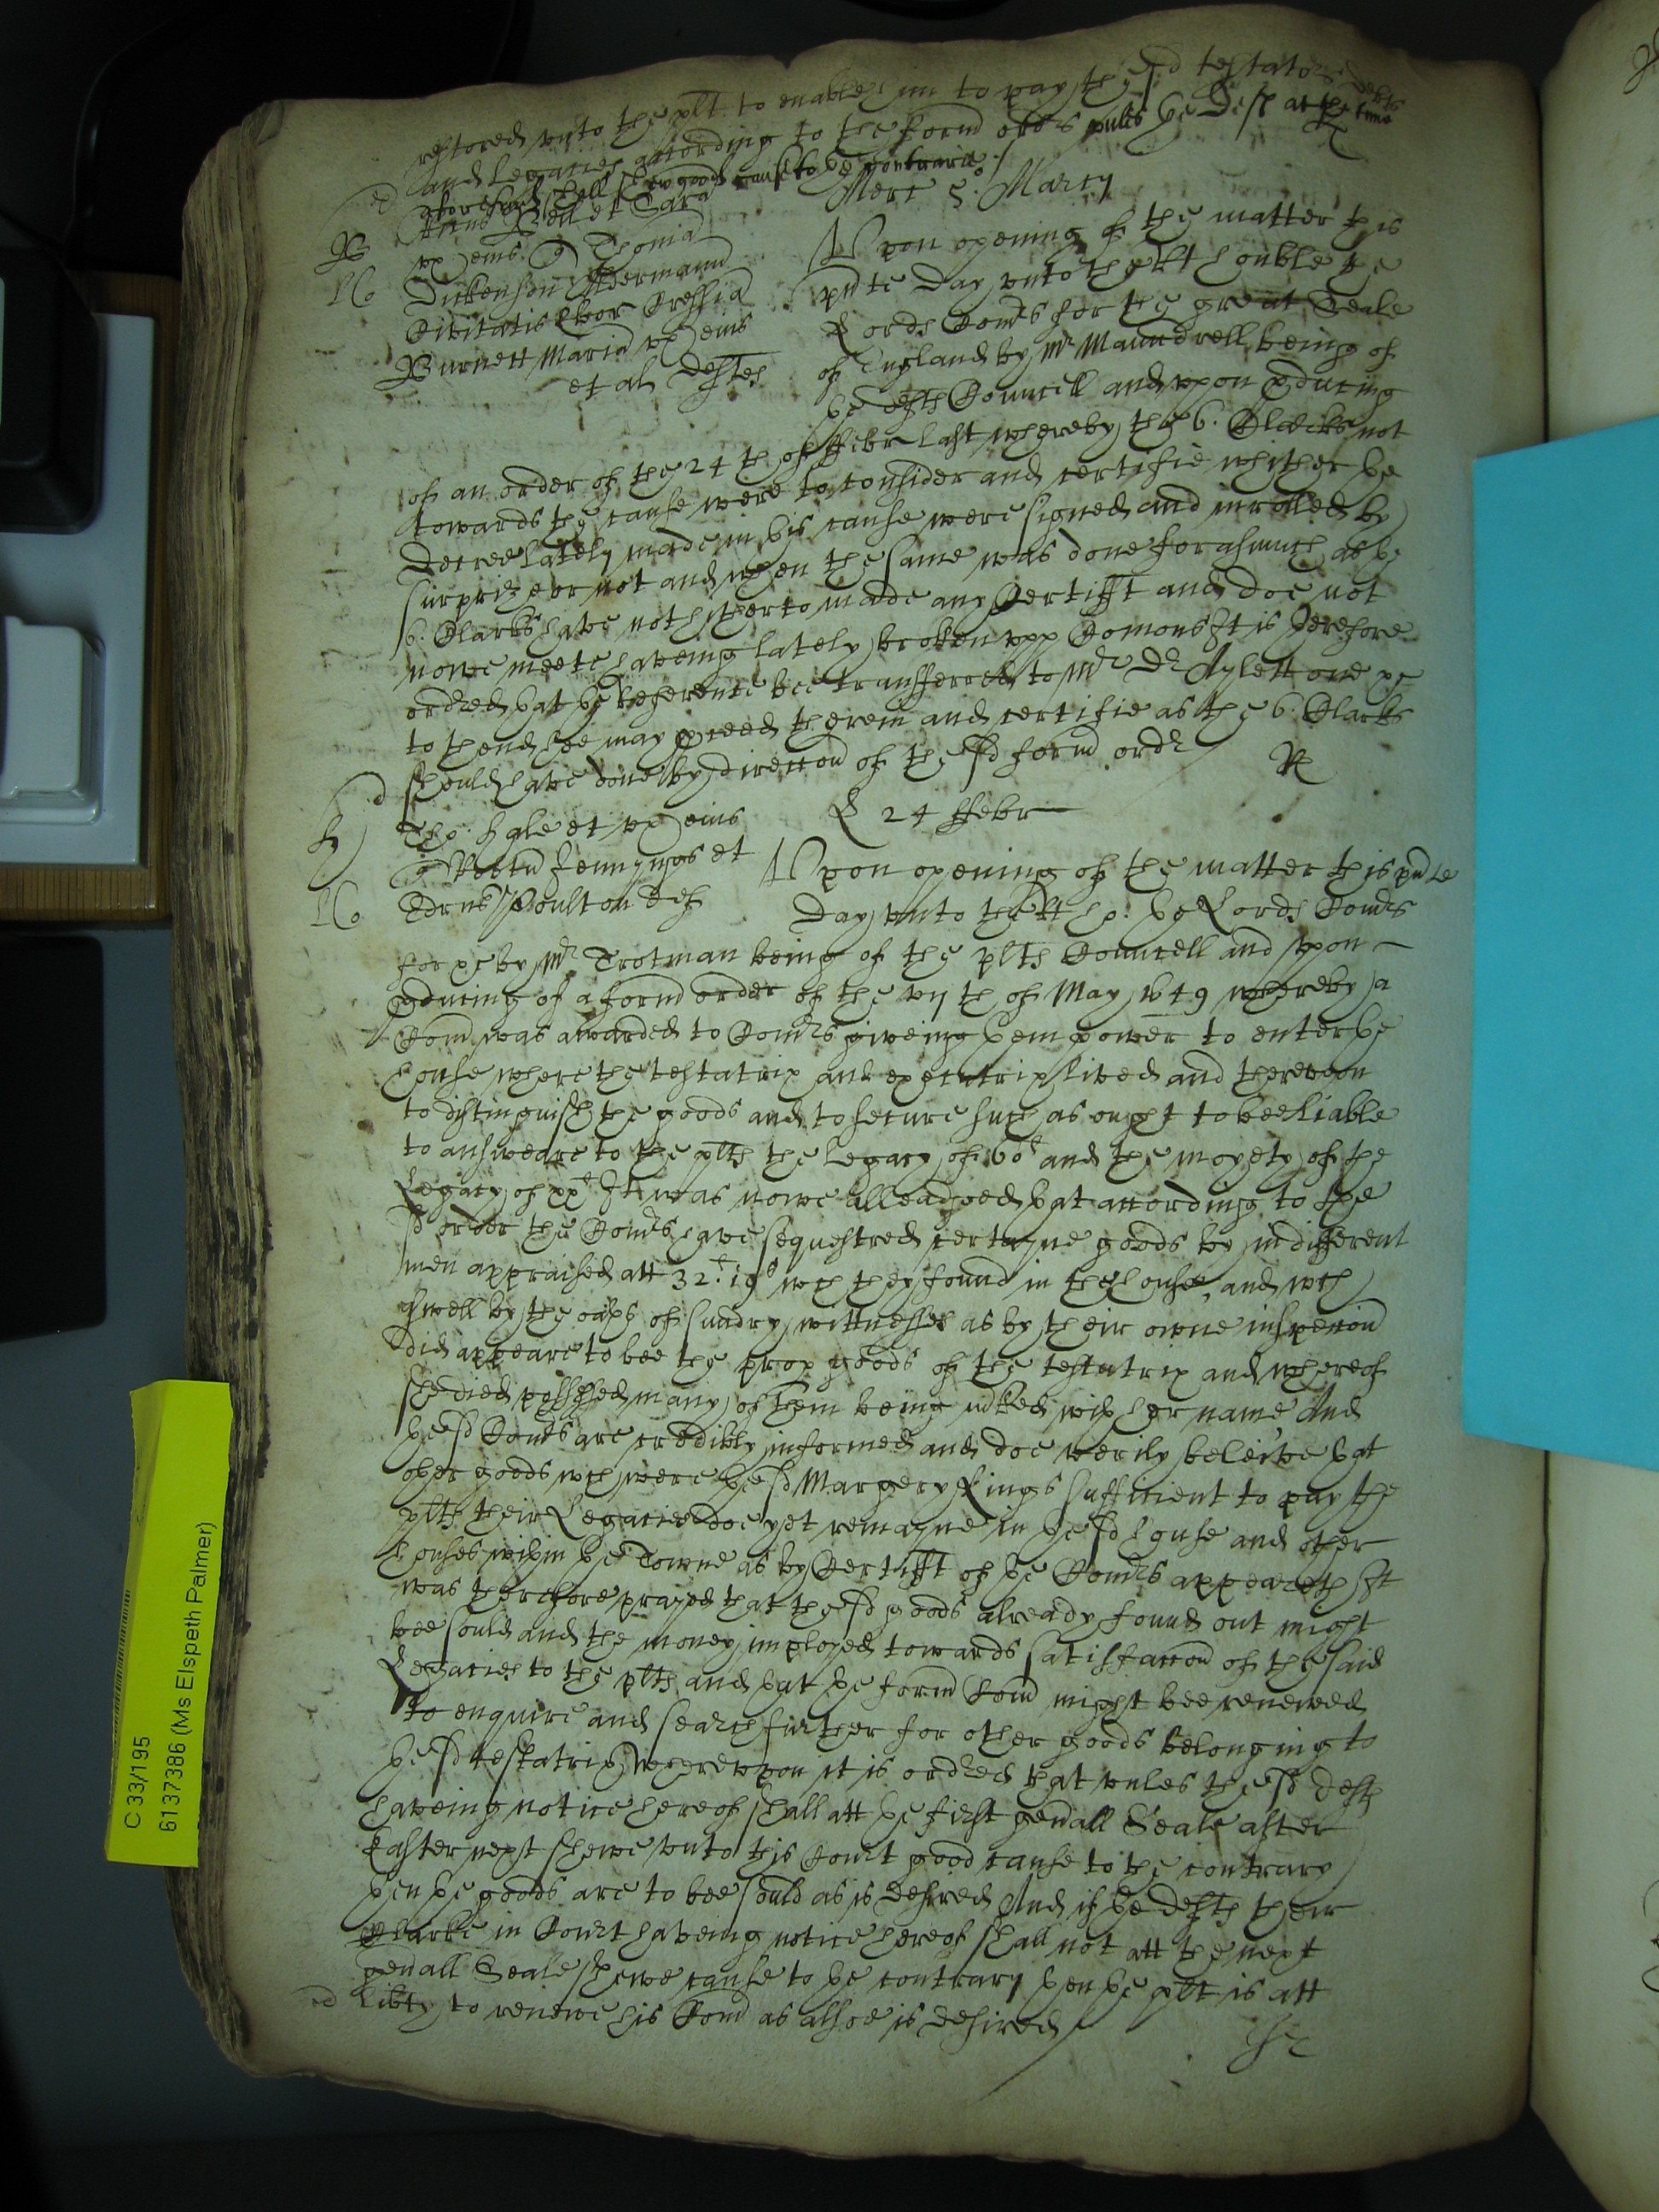 restored unto the plt to enable him to pay the sd testators debts
and Legacies according to the form ordrs unles the deft at the time
aforesaid shall shew good cause to the contrarie /
R
Merc 5o Marcij
B
No
Bell et Sara
ux eius q Thoma
Dickenson Aldermann
Civitatis Ebor
Burnett Maria ux eius
et al deftes
Upon opening of the matter this
pnte day unto the Rt honble the
Lords Comrs for the great Seale
of England by Mr Maundrell being of
the defts Councell and upon pducing
of an order of the 24th of ffebr last whereby the 6. Clarks not
towards the cause were to consider and certifie whither the
decree lately made in this cause were signed and inrolled by
surprize or not and when the same was done forasmuch as the
6. Clarks have not hitherto made any Certifft and doe not
nowe meete haveing lately broken upp Comons It is therefore
ordred that the reference bee transferred to Mr Dr Aylett one &c
to thend hee may pceed therein and certifie as the 6. Clarks
should have done by direccon of the sd form ordr /
R
L 24 ffebr
H
No
Tho: Hale et ux eius
q Jennyngs et
Poulton def
Upon opening of the matter this pnte
day unto the Rt ho: the Lords Comrs
for &c by Mr Trotman being of the plts Councell and upon
pducing of a form order of the vijth of May 1649 whereby a
Com was awarded to Comrs giveing them power to enter the
house where the testatrix and executrix lived and thereupon
to distinguish the goods and to secure such as ought to bee liable
to answeare to the plts the Legacy of 60l and the moyety of the
Legacy of xxl It was nowe alleadged that according to the
sd order the Comrs have sequestred certayne goods by indifferent
men appraised att 32l. 19s wch they found in the house, and wch
aswell by the oaths of sundry wittnesses as by their owne inspeccon
did appeare to bee the prop goods of the testatrix and whereof
she died possessed many of them being mrked with her name And
the sd Comrs are credibly informed and doe verily beleive that
other goods wch were the sd Margery Kings sufficient to pay the
plts their Legacies doe yet remayne in the sd house and other
houses within the Towne as by Certifft of the Comrs appeareth It
was therefore prayed that the sd goods already found out might
bee sould and the money imployed towards satisfaccon of the said
Legacies to the plts and that the form Com might bee renewed
to enquire and search further for other goods belonging to
the sd testatrix, Whereupon it is ordred that unles the sd defts
haveing notice hereof shall att the first genall Seale after
Easter next shewe unto this Court good cause to the contrary
then the goods are to bee sould as is desired And if the defts their
Clarke in Court haveing notice hereof shall not att the next
genall Seale shewe cause to the contrary then the plt is att
libty to renewe his Com as alsoe is desired /
C 33/195
6137386 (Ms Elspeth Palmer)